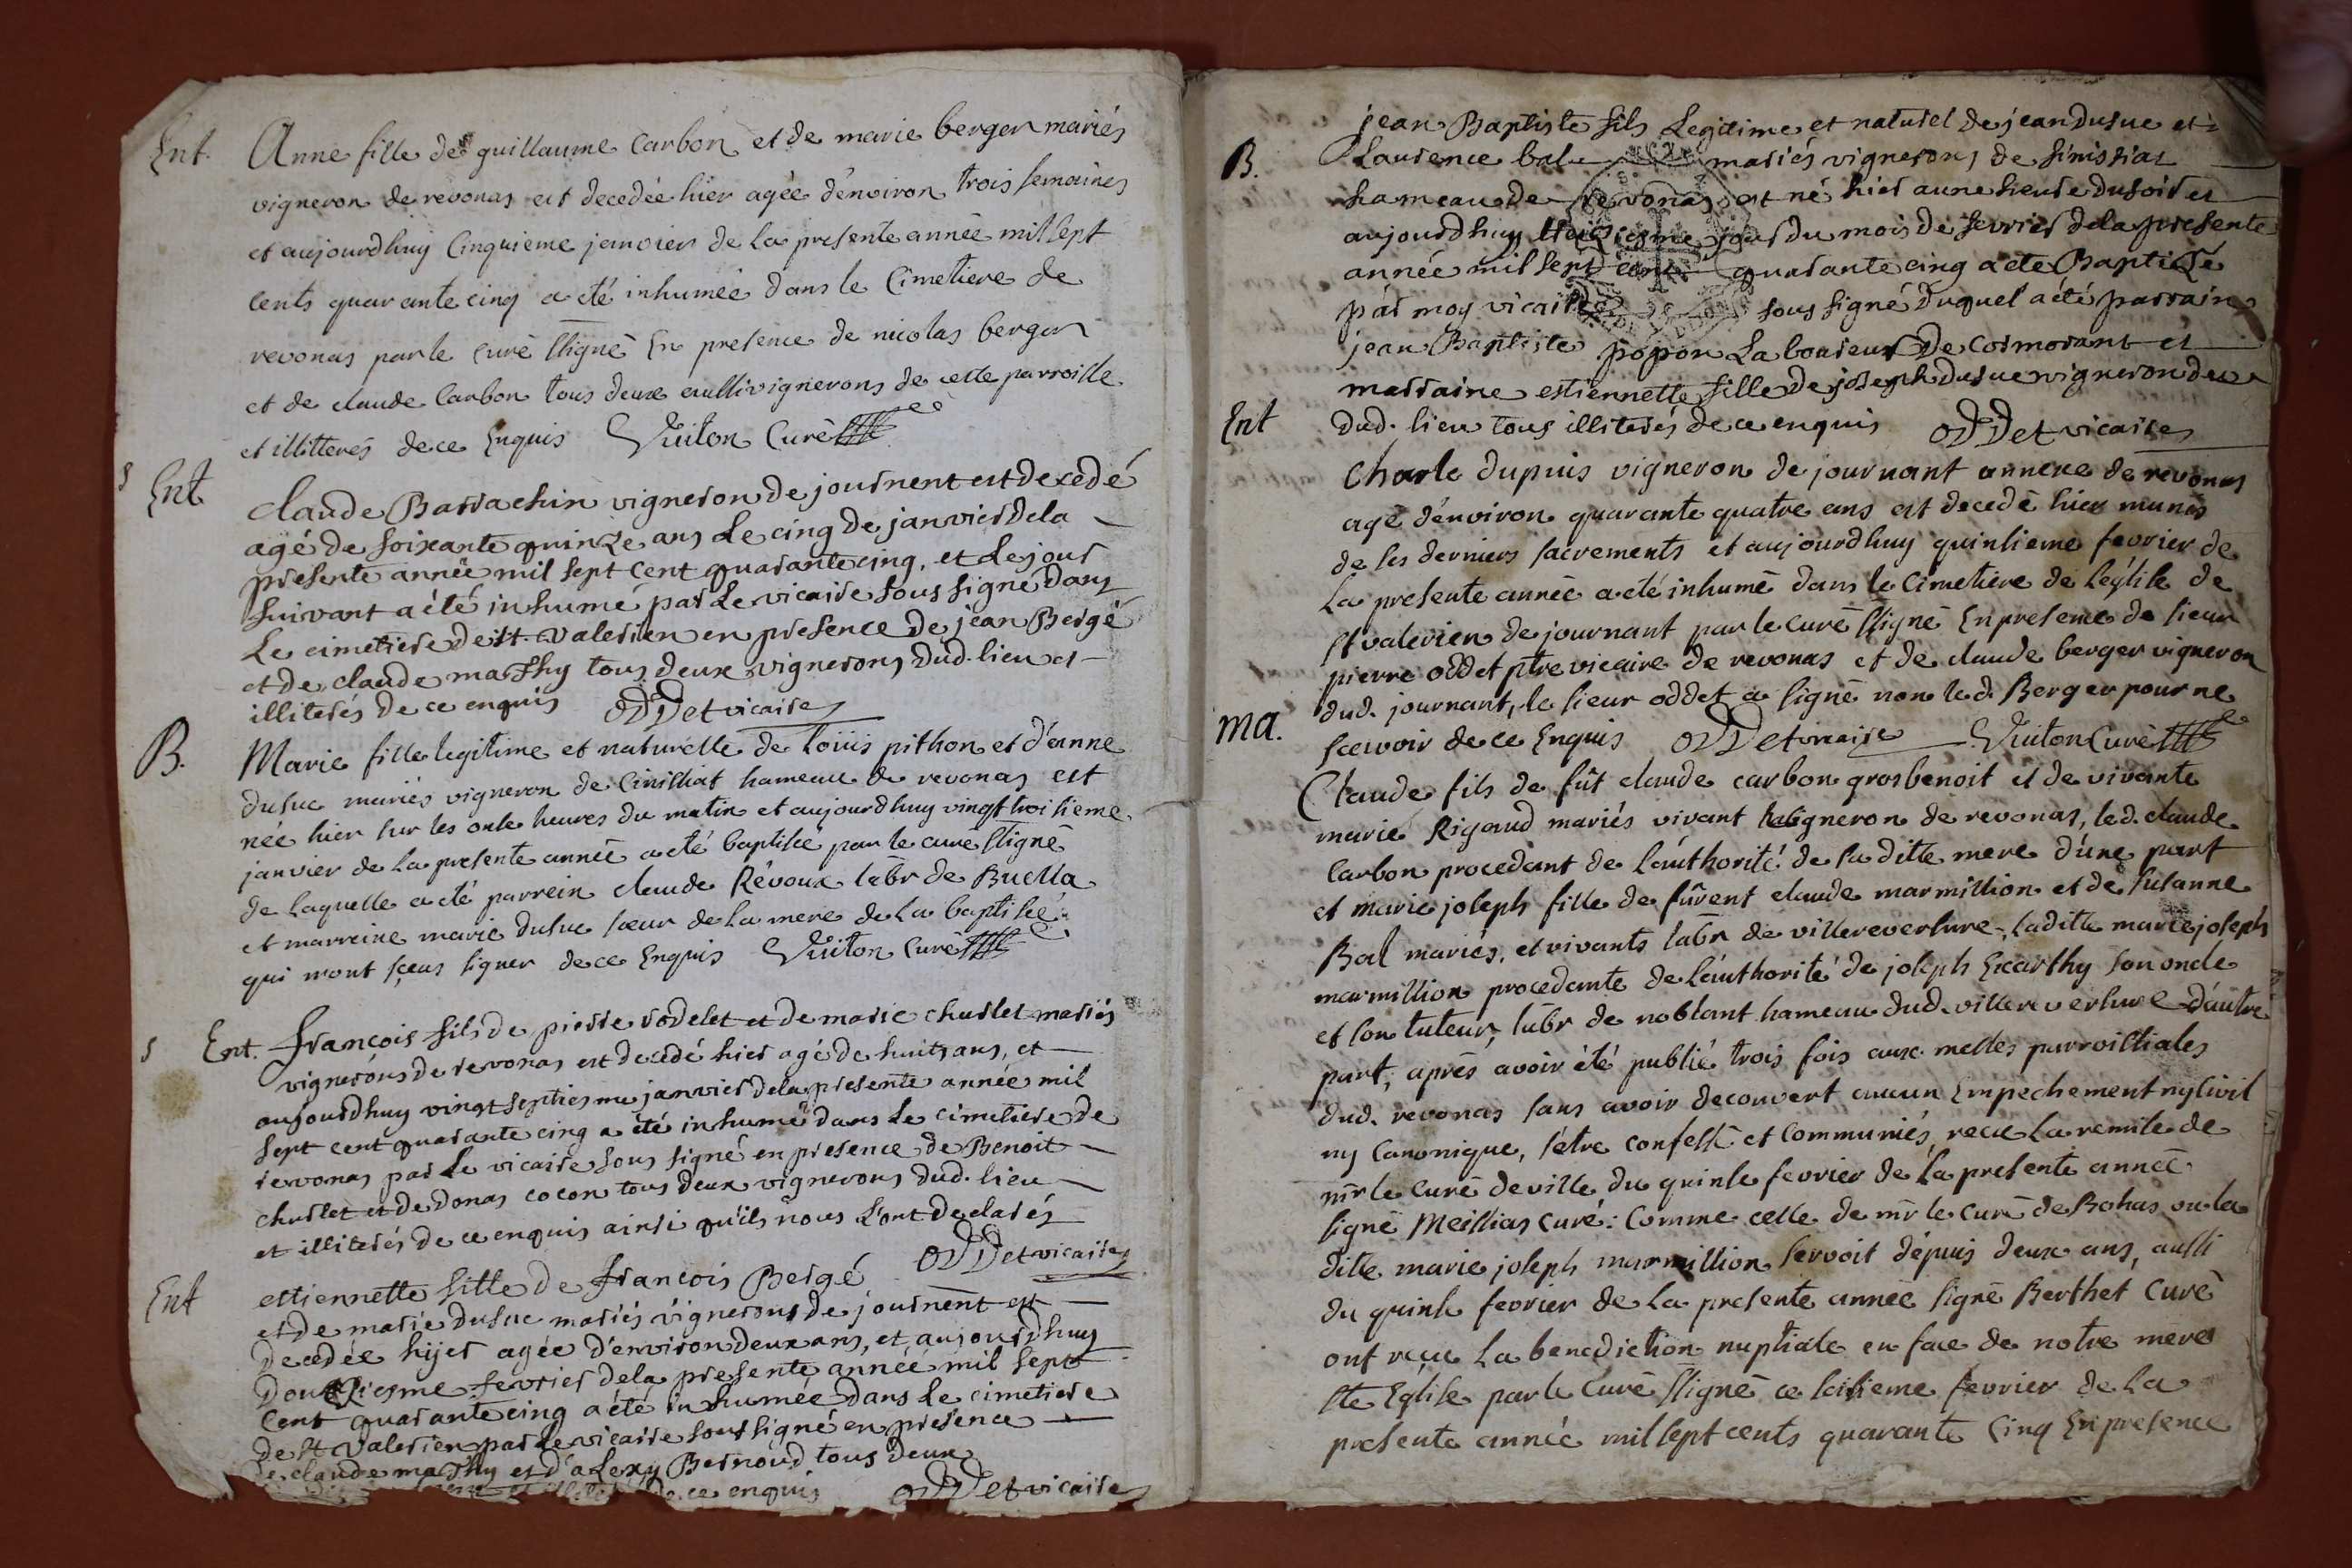 Ent. Anne fille de guillaume Carbon et de marie berger mariés
vigneron de revonas est decedée hier agée d'environ trois semaines
et aujourdhuy Cinquieme janvier de la presente année mil sept
cents quarante cinq a eté inhumée dans le Cimetiere de
revonas par le curé ssigné En presence de nicolas berger
et de claude Carbon tous deux aussi vignerons de cette parroisse
et illitterés de ce Enquis Vuiton Curé
s Ent. claude Barrachin vigneron de journent est decedé
agé de soixante quinze ans le cinq de janvier de la
presente année mil sept cent quarante cinq, et le jour
suivant a été inhumé par le vicaire sous signé dans
le cimetiere de st. valerien en presence de jean Bergé
et de claude marthy tous deux vignerons dud. lieu et
illiterés de ce enquis oddet vicaire
B. Marie fille legitime et naturelle de loüis pithon et d'anne
dusuc mariés vigneron de Cinissiat hameau de revonas est
née hier sur les onse heures du matin et aujourdhuy vingt troisieme
janvier de la presente année a eté baptisée par le curé ssigné
de laquelle a eté parrein claude Révoux labr de Buella
et marreine marie dusuc sœur de la mere de la baptisée
qui n'ont sçeus signer de ce Enquis Vuiton Curé
s Ent. françois fils de pierre rodelet et de marie churlet mariés
vignerons de revonas est decedé hier agé de huit ans, et
aujourdhuy vingt septiesme janvier de la presente année mil
sept cent quarante cinq a été inhumé dans le cimetiere de
revonas par le vicaire sous signé en presence de Benoit
churlet et de donas cocon tous deux vignerons dud. lieu
et illiterés de ce enquis ainsi qu'ils nous l'ont declarés
oddet vicaire
Ent estiennette fille de francois Bergé
et de marie dusuc mariés vignerons de journent est
decedée hijer agée d'environ deux ans, et aujourdhuy
douziesme fevrier de la presente année mil sept
cent quarante cinq a été inhumée dans le cimetiere
de st valerien par le vicaire sous signé en presence
de claude marthy et d'alexy Bernoud tous deux
de ce enquis oddet vicaire
jean Baptiste fils legitime et naturel de jean dusuc et
B. Laurence bal mariés vignerons de sinissiat
hameau de revonas est né hier a une heure du soir et
aujourdhuy treiziesme jour du mois de fevrier de la presente
année mil sept cent quarante cinq a ete Baptizé
par moy vicaire sous signé duquel a été parrain
jean Baptiste popon laboureur de cormorant et
marraine estiennette fille de joseph dusuc vigneron de
Ent dud. lieu tous illiterés de ce enquis oddet vicaire
Charle dupuis vigneron de journant annexe de revonas
agé d'environ quarante quatre ans est decedé hier munis
de ses derniers sacrements et aujourdhuy quinsieme fevrier de
la presente année a eté inhumé dans le Cimetiere de léglise de
st valerien de journant par le curé ssigné En presence de sieur
pierre oddet ptre vicaire de revonas et de claude berger vigneron
dud. journant, le sieur oddet a signé non led. Berger pour ne
ma. scavoir de ce Enquis oddet vicaire Vuiton Curé
Claude fils de fût claude carbon grosbenoit et de vivante
marie Rigaud mariés vivant vigneron de revonas, led. claude
Carbon procedant de l'authorité de sa ditte mere d'une part
et marie joseph fille de fûrent claude marmillion et de susanne
Bal mariés, et vivants labr de villereversure, laditte marie joseph
marmillion procedante de l'authorité de joseph Ecarthy son oncle
et son tuteur, labr de noblant hameau dud. villereversure d'autre
part, aprés avoir été publié trois fois aux messes parroissiales
dud. revonas sans avoir decouvert aucun Empechement ny Civil
ny Canonique, s'etre confessé et communiés, recu la remise de
mr le curé de ville du quinse fevrier de la presente année
signé Meillias curé: Comme celle de mr le curé de Bohas ou la
ditte marie joseph marmillion servoit dépuis deux ans, aussi
du quinse fevrier de la presente année signé Berthet Curé
ont recu la benediction nuptiale en face de notre mere
ste Eglise par le curé ssigné ce seisieme fevrier de la
presente année mil sept cents quarante Cinq En presence